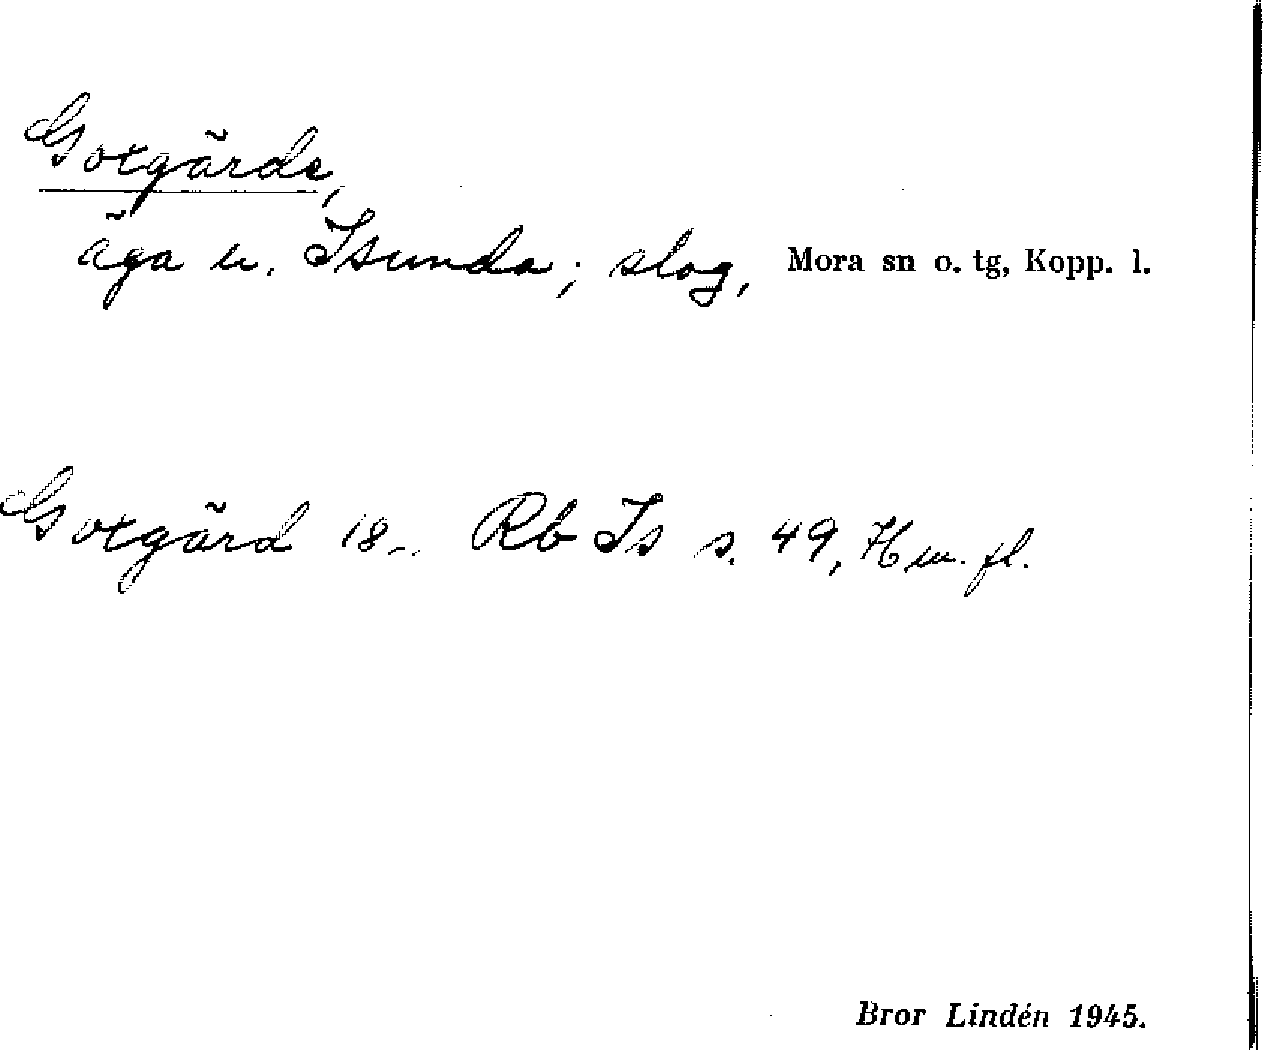 Gotgärde,
äga u. Isunda; slog, Mora sn o. tg, Kopp. l.
Gotgärd 18-. Rb Is s. 49, H m. fl.
Bror Lindén 1945.